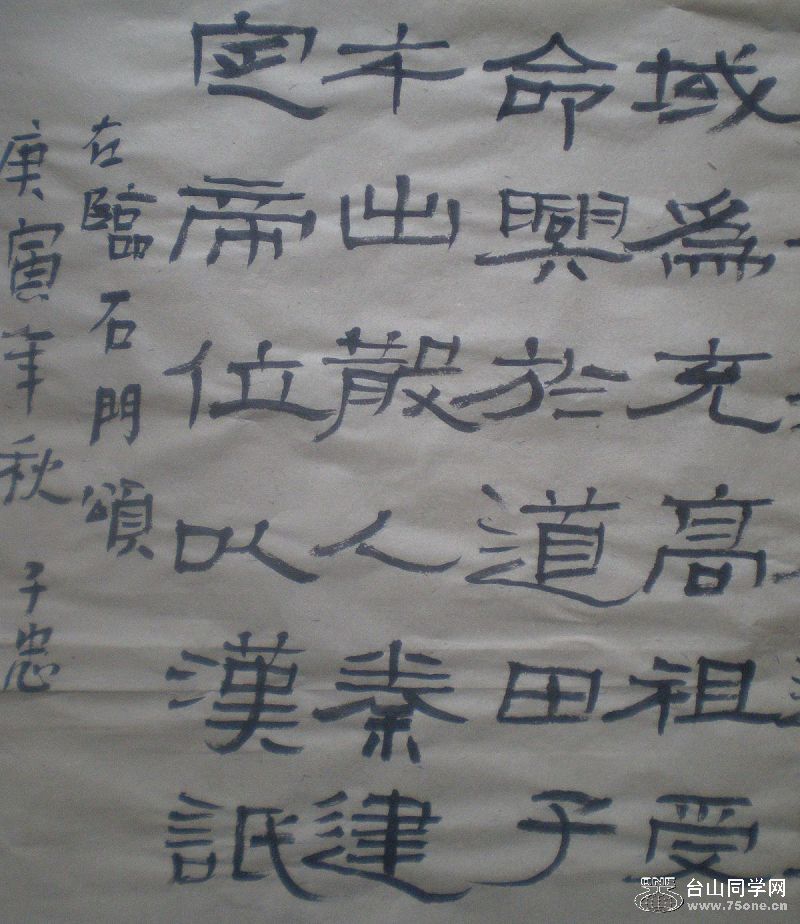 域為充高祖受
命興於道田子
午出散入秦建
定帝位以漢詆
右臨石門頌
庚寅年秋 子忠
台山同学网
www.75one.cn